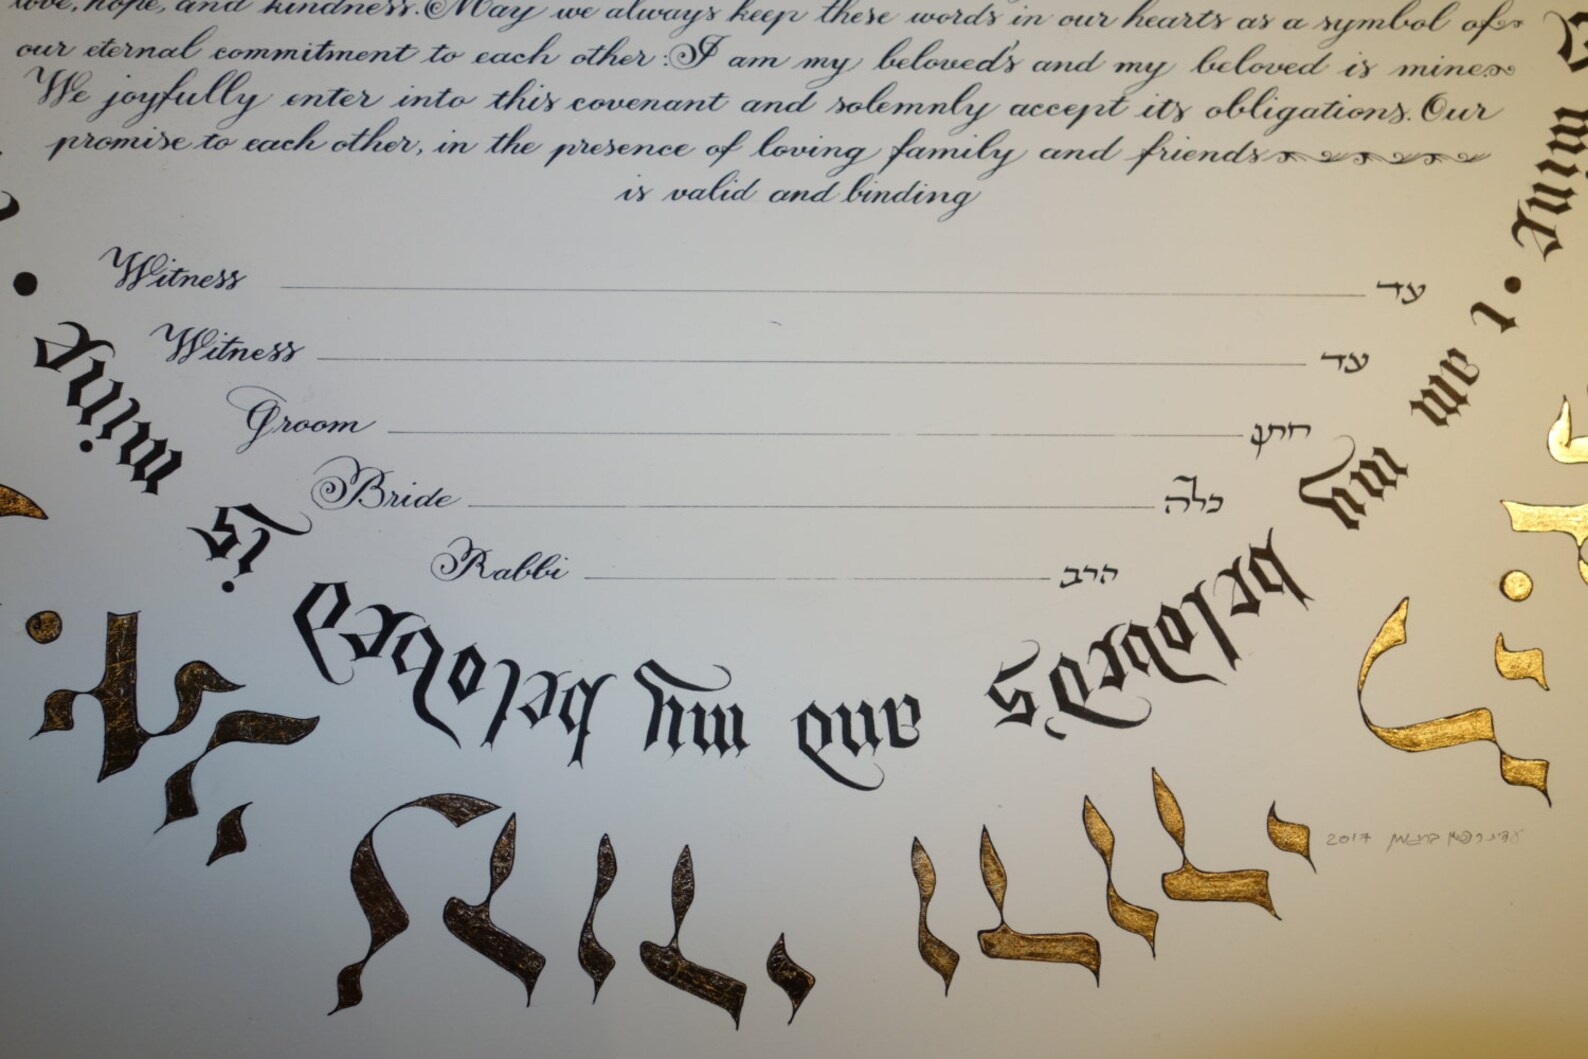 love, hope, and kindness. May we always keep these words in our hearts as a symbol of
our eternal commitment to each other: I am my beloved's and my beloved is mine
We joyfully enter into this covenant and solemnly accept its obligations. Our
promise to each other, in the presence of loving family and friends
is valid and binding
Witness עד
Witness עד
Groom חתן
Bride כלה
Rabbi הרב
mine • I am my beloveds and my beloved is mine •
לדודי ודודי לי
2017